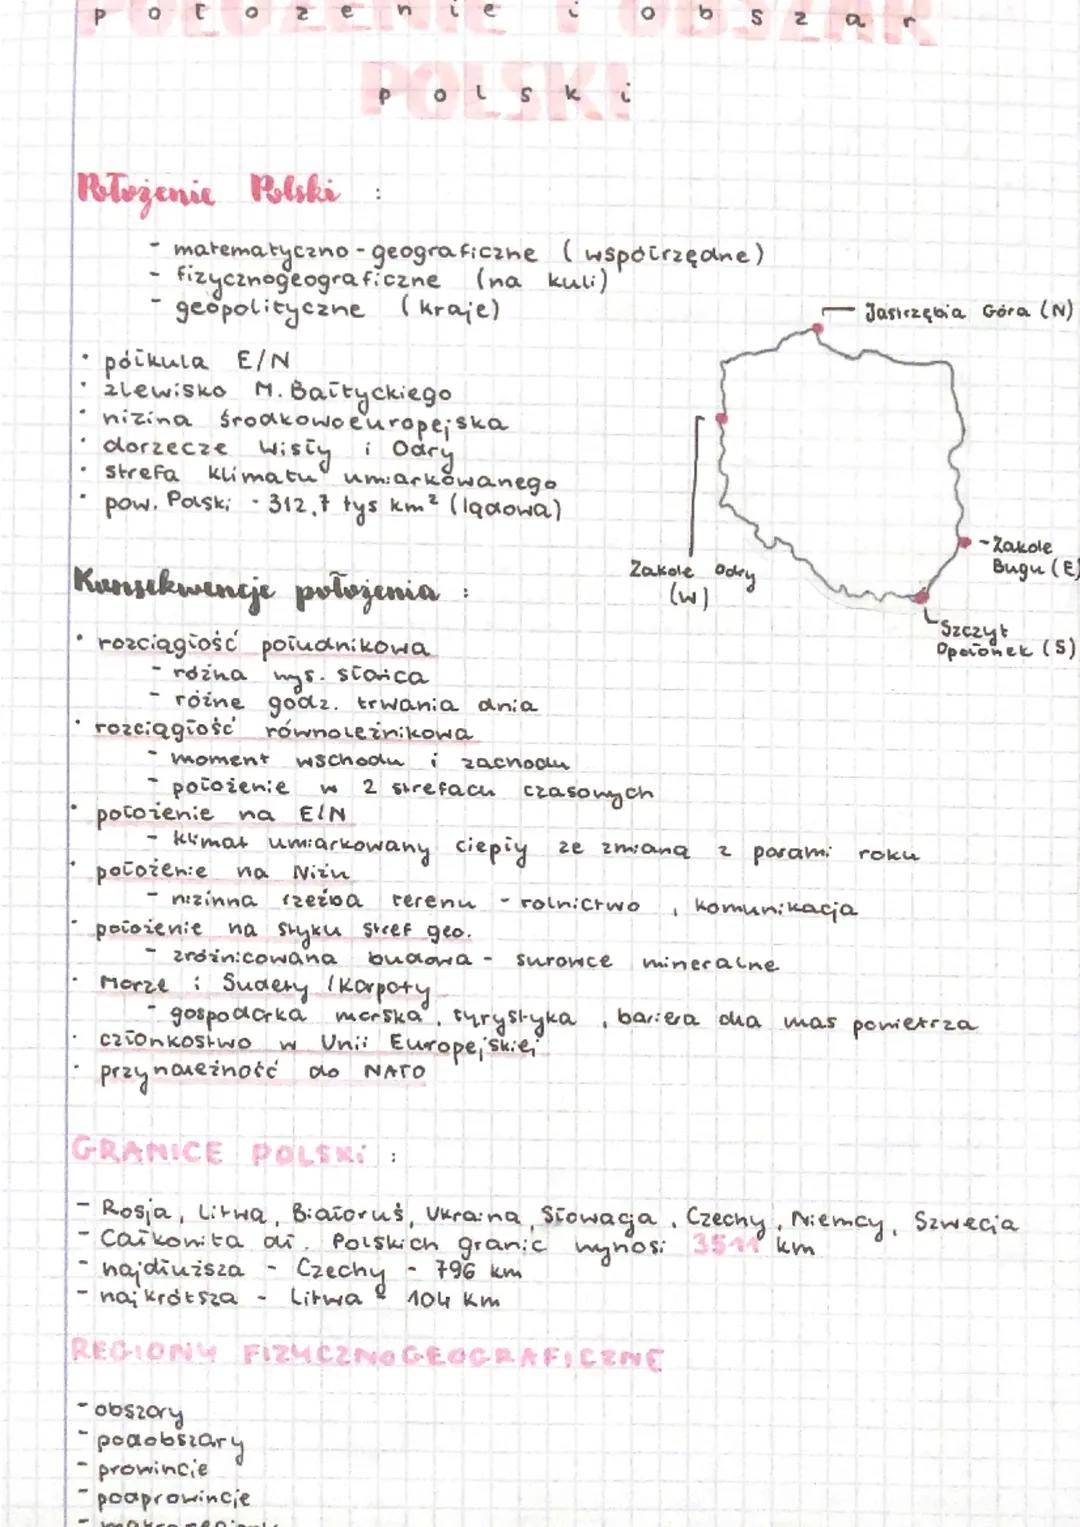 położenie i obszar
polski
Położenie Polski :
- matematyczno-geograficzne (współrzędne)
- fizycznogeograficzne (na kuli)
- geopolityczne (kraje)
• półkula E/N
• zlewisko M. Bałtyckiego
• nizina środkowoeuropejska
• dorzecze Wisły i Odry
• strefa klimatu umiarkowanego
• pow. Polski - 312,7 tys km² (lądowa)
Jastrzębia Góra (N)
Zakole Odry
(W)
- Zakole
Bugu (E)
Szczyt
Opołonek (S)
Konsekwencje położenia :
• rozciągłość południkowa
- różna wys. słońca
- różne godz. trwania dnia
• rozciągłość równoleżnikowa
- moment wschodu i zachodu
- położenie w 2 strefach czasowych
• położenie na E/N
- klimat umiarkowany ciepły ze zmianą z porami roku
• położenie na Niżu
- nizinna rzeźba terenu - rolnictwo, komunikacja
• położenie na styku stref geo.
- zróżnicowana budowa - surowce mineralne
• Morze i Sudety / Karpaty
- gospodarka morska, turystyka, bariera dla mas powietrza
• członkostwo w Unii Europejskiej
• przynależność do NATO
GRANICE POLSKI :
- Rosja, Litwa, Białoruś, Ukraina, Słowacja, Czechy, Niemcy, Szwecja
- Całkowita dł. Polskich granic wynosi 3511 km
- najdłuższa - Czechy - 796 km
- najkrótsza - Litwa - 104 km
REGIONY FIZYCZNOGEOGRAFICZNE
- obszary
- podobszary
- prowincje
- podprowincje
- makroregiony